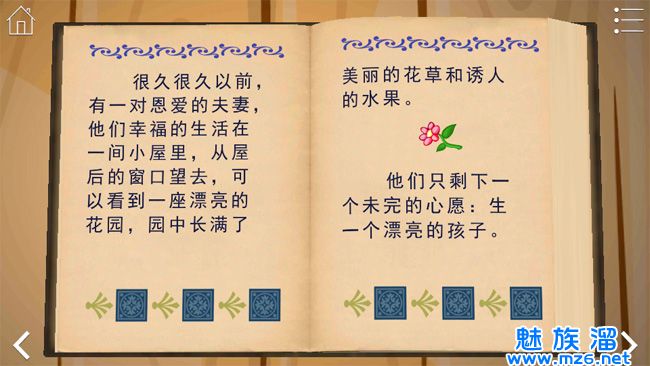 很久很久以前，
有一对恩爱的夫妻，
他们幸福的生活在
一间小屋里，从屋
后的窗口望去，可
以看到一座漂亮的
花园，园中长满了
美丽的花草和诱人
的水果。
他们只剩下一
个未完的心愿：生
一个漂亮的孩子。
魅族溜
www.mz6.net